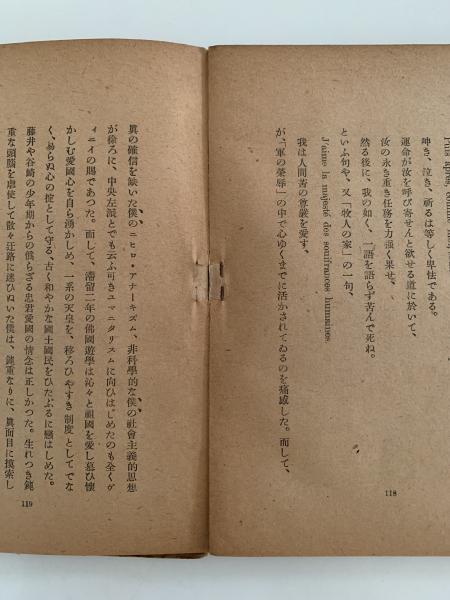 Puis après, comme moi,
呻き、泣き、祈るは等しく卑怯である。
運命が汝を呼び寄せんと欲せる道に於いて、
汝の永き重き任務を力強く果せ、
然る後に、我の如く、一語を語らず苦んで死ね。
といふ句や、又「牧人の家」の一句、
J'aime la majesté des souffrances humaines.
我は人間苦の尊嚴を愛す、
が、「軍の榮辱」の中で心ゆくまでに活かされてゐるのを痛感した。而して、
118
眞の確信を缺いた僕のニヒロ・アナーキズム、非科學的な僕の社會主義的思想
が徐ろに、中央左派とでも云ふ可きユマニタリスムに向ひはじめたのも全くヴ
ィニイの賜であつた。而して、滯留二年の佛國遊學は沁々と祖國を愛し慕ひ懷
かしむ愛國心を自ら湧かしめ、一系の天皇を、移ろひやすき制度としてでな
く、易らぬ心の掟として守る、古く和やかな國土國民をひたぶるに
藤井や谷崎の少年期からの僞らざる忠君愛國の情念は正しかつた。生れつき鈍
重な頭腦を虐使して散々迂路に迷ひぬいた僕は、鈍重なりに、眞面目に摸索し
119